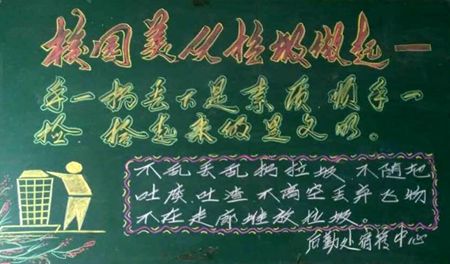 校园美从垃圾做起一
手一扔丢不是素质顺手一
捡 拾起来的是文明。
不乱丢乱扔垃圾 不随地
吐痰、吐渣 不高空丢弃飞物
不在走廊堆放垃圾。
后勤处宿管中心